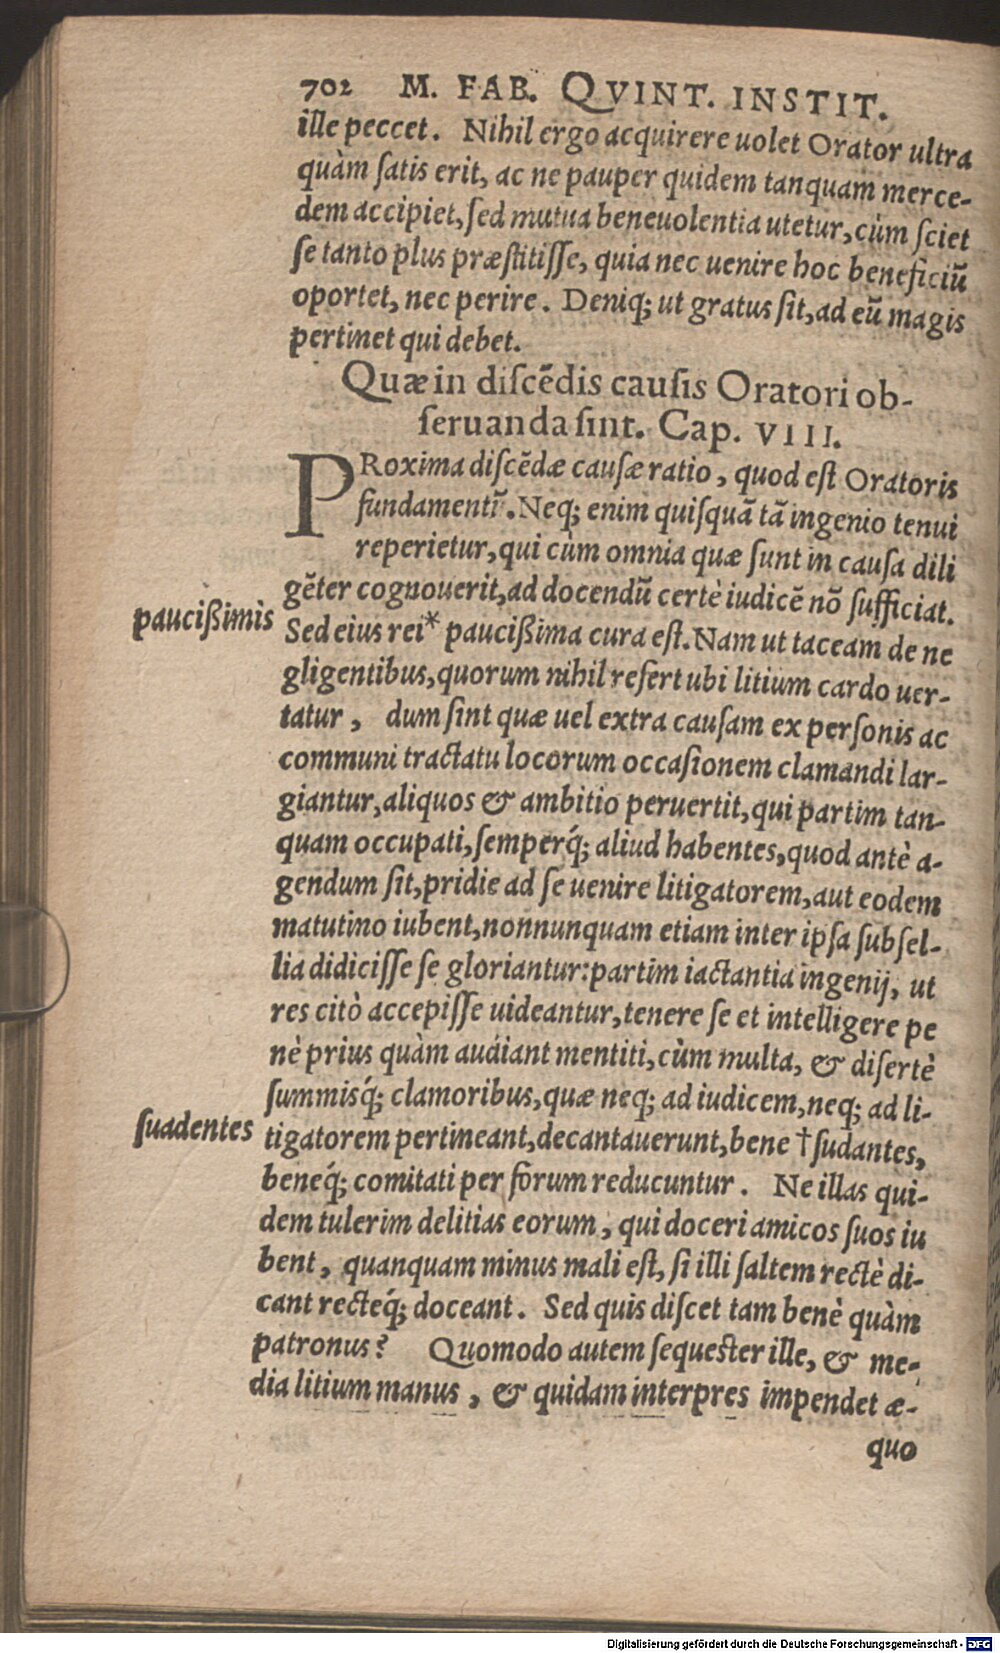 702 M. FAB. QVINT. INSTIT.
ille peccet. Nihil ergo acquirere uolet Orator ultra
quàm ſatis erit, ac ne pauper quidem tanquam merce-
dem accipiet, ſed mutua beneuolentia utetur, cùm ſciet
ſe tanto plus præſtitiſſe, quia nec uenire hoc beneficiũ
oportet, nec perire. Deniq; ut gratus ſit, ad eũ magis
pertinet qui debet.
Quæ in diſcẽdis cauſis Oratori ob-
ſeruanda ſint. Cap. VIII.
PRoxima diſcẽdæ cauſæ ratio, quod eſt Oratoris
fundamentũ. Neq; enim quiſquã tã ingenio tenui
reperietur, qui cùm omnia quæ ſunt in cauſa dili
gẽter cognouerit, ad docendũ certè iudicẽ nõ ſufficiat.
paucißimis
Sed eius rei* paucißima cura eſt. Nam ut taceam de ne
gligentibus, quorum nihil refert ubi litium cardo uer-
tatur, dum ſint quæ uel extra cauſam ex perſonis ac
communi tractatu locorum occaſionem clamandi lar-
giantur, aliquos & ambitio peruertit, qui partim tan-
quam occupati, ſemperq́; aliud habentes, quod antè a-
gendum ſit, pridie ad ſe uenire litigatorem, aut eodem
matutino iubent, nonnunquam etiam inter ipſa ſubſel-
lia didiciſſe ſe gloriantur: partim iactantia ingenij, ut
res citò accepiſſe uideantur, tenere ſe et intelligere pe
nè prius quàm audiant mentiti, cùm multa, & diſertè
ſummisq́; clamoribus, quæ neq; ad iudicem, neq; ad li-
ſuadentes
tigatorem pertineant, decantauerunt, bene †ſudantes,
beneq́; comitati per forum reducuntur. Ne illas qui-
dem tulerim delitias eorum, qui doceri amicos ſuos iu
bent, quanquam minus mali eſt, ſi illi ſaltem rectè di-
cant recteq́; doceant. Sed quis diſcet tam benè quàm
patronus? Quomodo autem ſequeſter ille, & me-
dia litium manus, & quidam interpres impendet æ-
quo
Digitalisierung gefördert durch die Deutsche Forschungsgemeinschaft - DFG